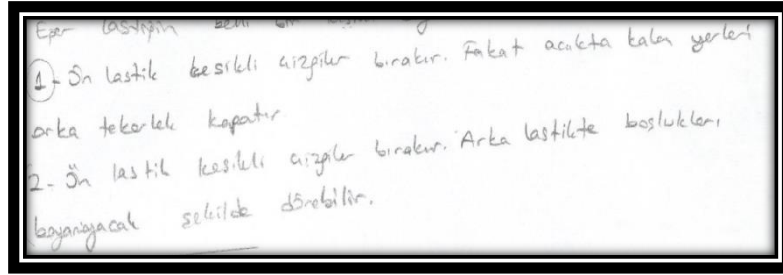 Eğer lastiğin
1- Ön lastik kesikli çizgiler bırakır. Fakat açıkta kalan yerleri
arka tekerlek kapatır.
2- Ön lastik kesikli çizgiler bırakır. Arka lastikte boşlukları
boyamayacak şekilde dönebilir.